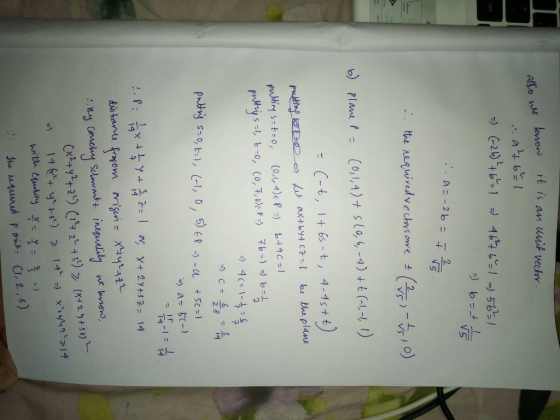 Also we know it is an unit vector
∴ a² + b² = 1
⇒ (-2b)² + b² = 1 ⇒ 4b² + b² = 1 ⇒ 5b² = 1
⇒ b = ± 1/√5
∴ a = -2b = ∓ 2/√5
∴ the required vectors are ± (2/√5, -1/√5, 0)
b) Plane P = (0,1,4) + s(0,6,-4) + t(-1,-1,1)
= (-t, 1+6s-t, 4-4s+t)
Let ax+by+cz=1 be the plane
putting s=t=0, (0,1,4)∈P ⇒ b+4c=1
putting s=1, t=0, (0,7,0)∈P ⇒ 7b=1 ⇒ b=1/7
⇒ 4c = 1-1/7 = 6/7
⇒ c = 6/28 = 3/14
putting s=0, t=1, (-1, 0, 5)∈P ⇒ -a + 5c = 1
⇒ a = 5c-1
= 15/14 - 1 = 1/14
∴ P: 1/14 x + 1/7 y + 3/14 z = 1 or, x+2y+3z = 14
distance from origin = x²+y²+z²
∴ By Cauchy Schwarz inequality we know,
(x²+y²+z²)(1²+2²+3²) ≥ (x+2y+3z)²
⇒ 14(x²+y²+z²) ≥ 14² ⇒ x²+y²+z² ≥ 14
with equality x/1 = y/2 = z/3 = 1
∴ the required point: (1, 2, 3)